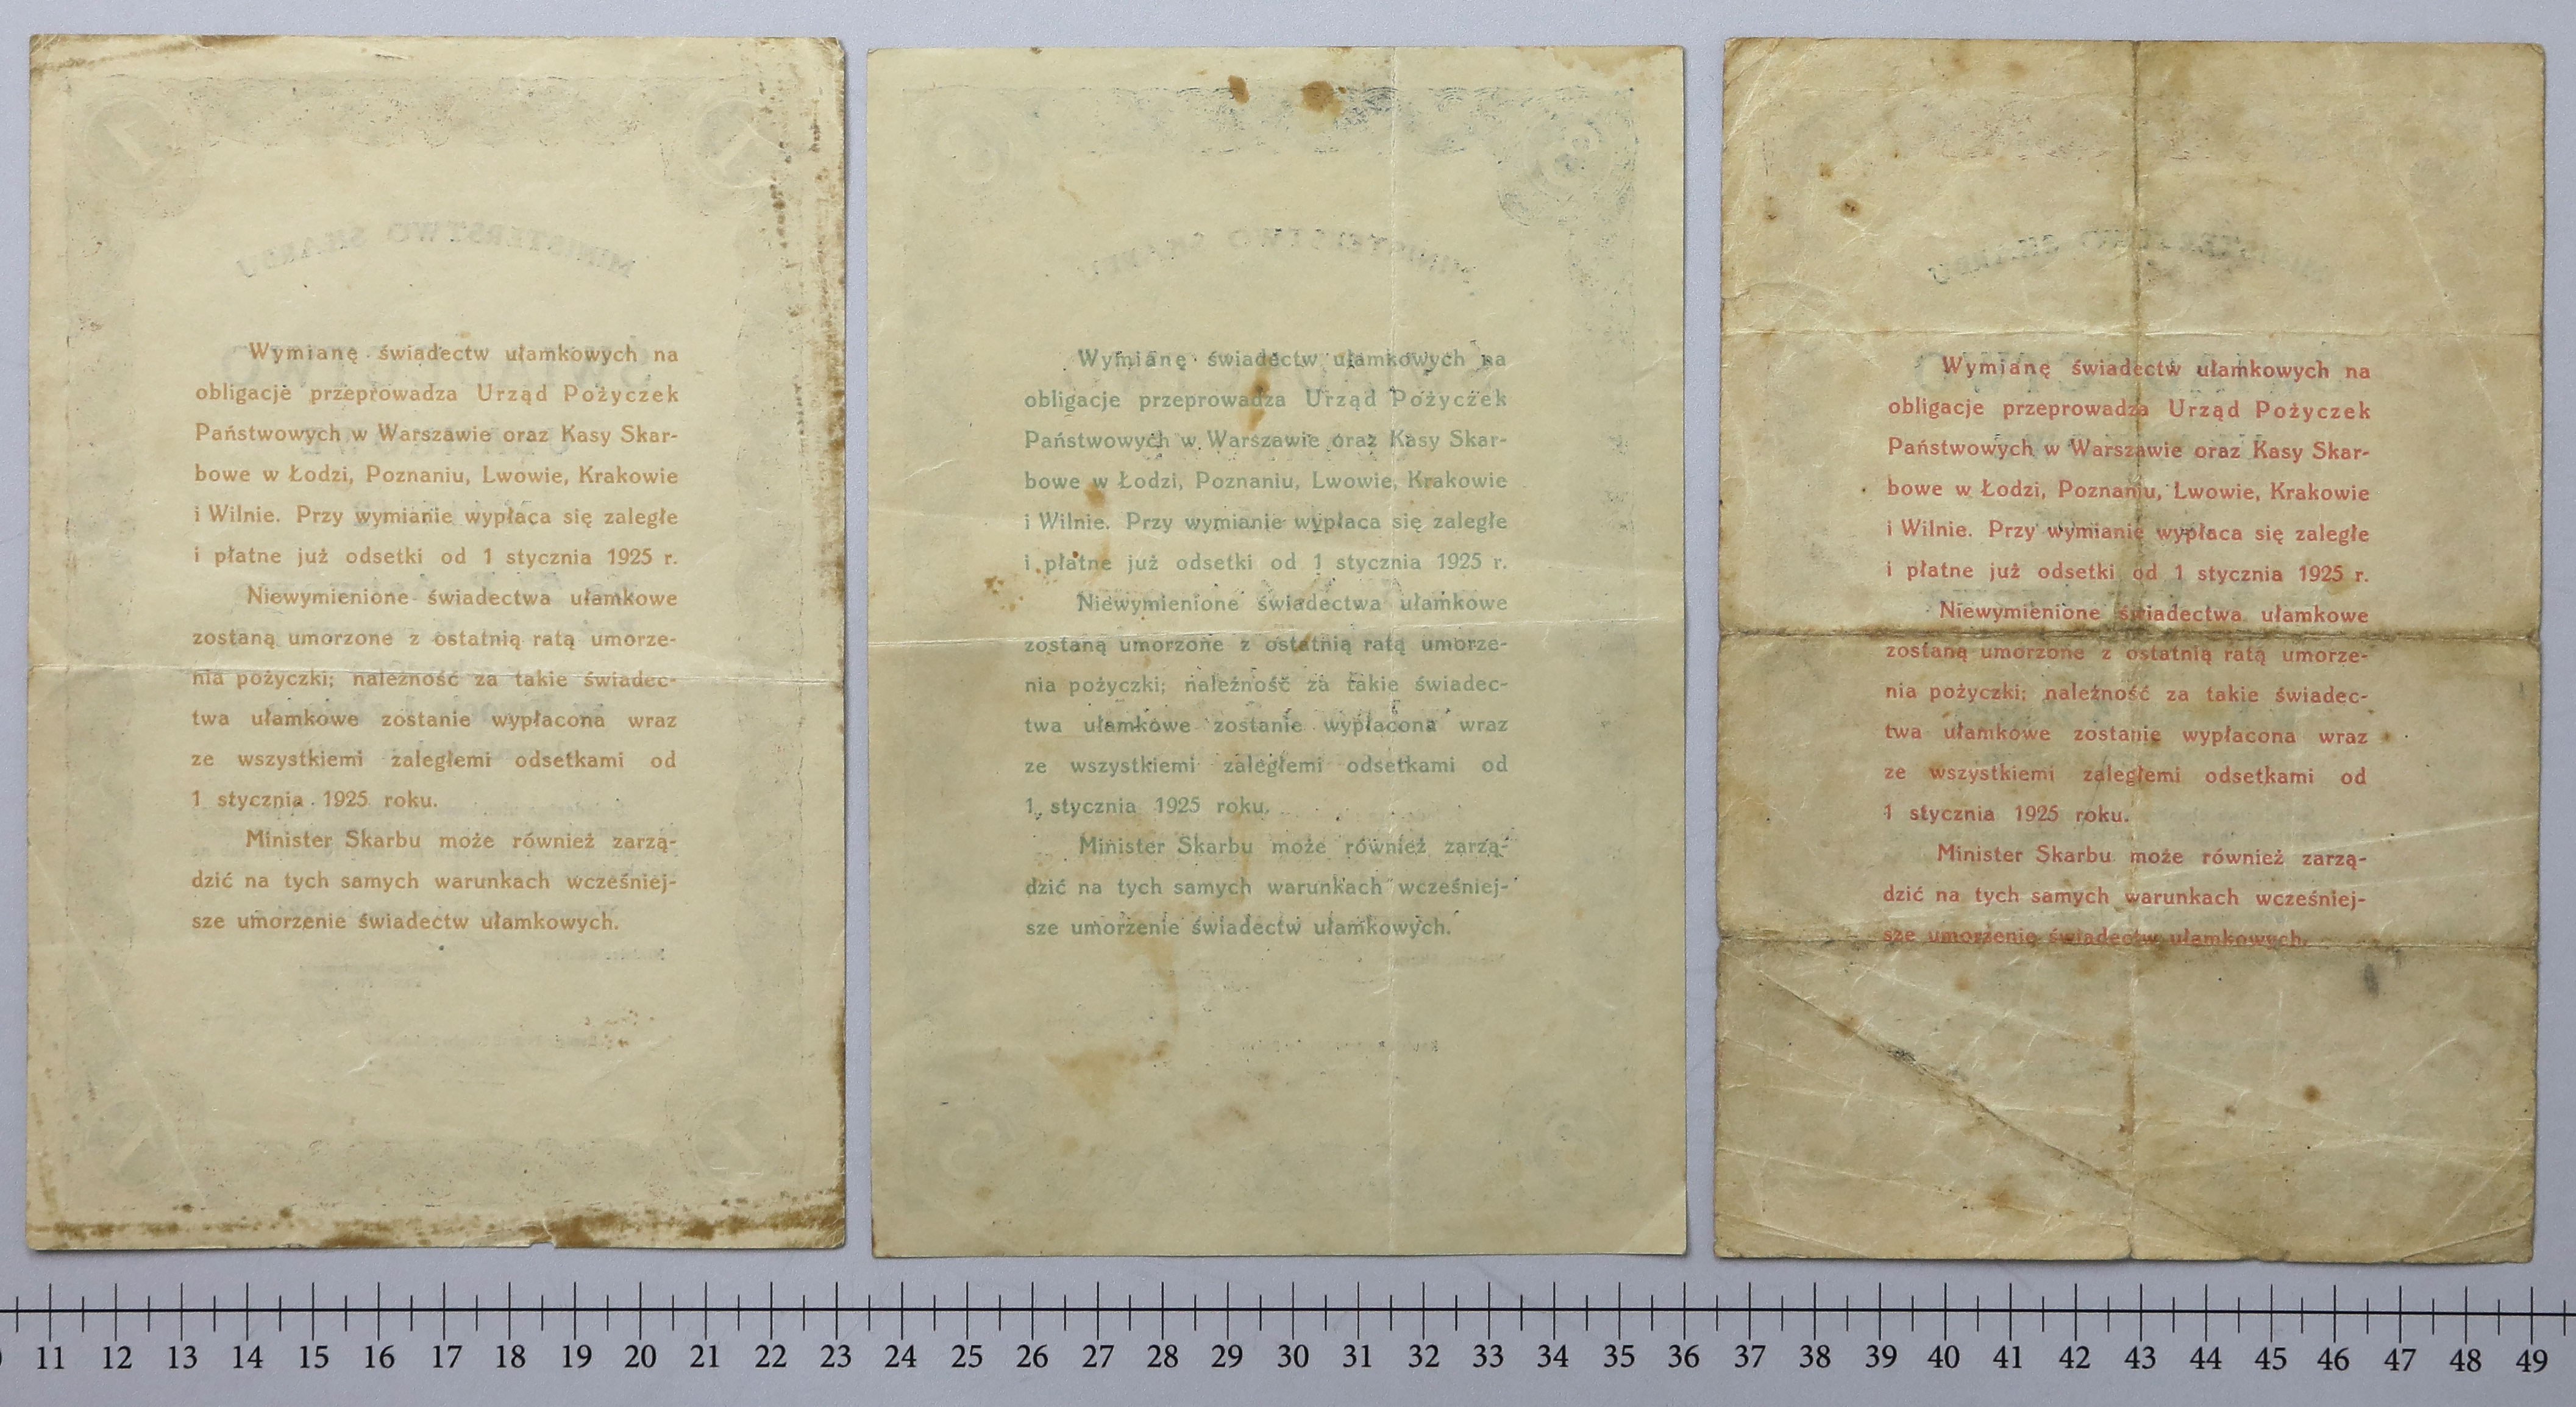 MINISTERSTWO SKARBU
Wymianę świadectw ułamkowych na
obligacje przeprowadza Urząd Pożyczek
Państwowych w Warszawie oraz Kasy Skar-
bowe w Łodzi, Poznaniu, Lwowie, Krakowie
i Wilnie. Przy wymianie wypłaca się zaległe
i płatne już odsetki od 1 stycznia 1925 r.
Niewymienione świadectwa ułamkowe
zostaną umorzone z ostatnią ratą umorze-
nia pożyczki; należność za takie świadec-
twa ułamkowe zostanie wypłacona wraz
ze wszystkiemi zaległemi odsetkami od
1 stycznia 1925 roku.
Minister Skarbu może również zarzą-
dzić na tych samych warunkach wcześniej-
sze umorzenie świadectw ułamkowych.
MINISTERSTWO SKARBU
Wymianę świadectw ułamkowych na
obligacje przeprowadza Urząd Pożyczek
Państwowych w Warszawie oraz Kasy Skar-
bowe w Łodzi, Poznaniu, Lwowie, Krakowie
i Wilnie. Przy wymianie wypłaca się zaległe
i płatne już odsetki od 1 stycznia 1925 r.
Niewymienione świadectwa ułamkowe
zostaną umorzone z ostatnią ratą umorze-
nia pożyczki; należność za takie świadec-
twa ułamkowe zostanie wypłacona wraz
ze wszystkiemi zaległemi odsetkami od
1 stycznia 1925 roku.
Minister Skarbu może również zarzą-
dzić na tych samych warunkach wcześniej-
sze umorzenie świadectw ułamkowych.
MINISTERSTWO SKARBU
Wymianę świadectw ułamkowych na
obligacje przeprowadza Urząd Pożyczek
Państwowych w Warszawie oraz Kasy Skar-
bowe w Łodzi, Poznaniu, Lwowie, Krakowie
i Wilnie. Przy wymianie wypłaca się zaległe
i płatne już odsetki od 1 stycznia 1925 r.
Niewymienione świadectwa ułamkowe
zostaną umorzone z ostatnią ratą umorze-
nia pożyczki; należność za takie świadec-
twa ułamkowe zostanie wypłacona wraz
ze wszystkiemi zaległemi odsetkami od
1 stycznia 1925 roku.
Minister Skarbu może również zarzą-
dzić na tych samych warunkach wcześniej-
sze umorzenie świadectw ułamkowych.
11 12 13 14 15 16 17 18 19 20 21 22 23 24 25 26 27 28 29 30 31 32 33 34 35 36 37 38 39 40 41 42 43 44 45 46 47 48 49